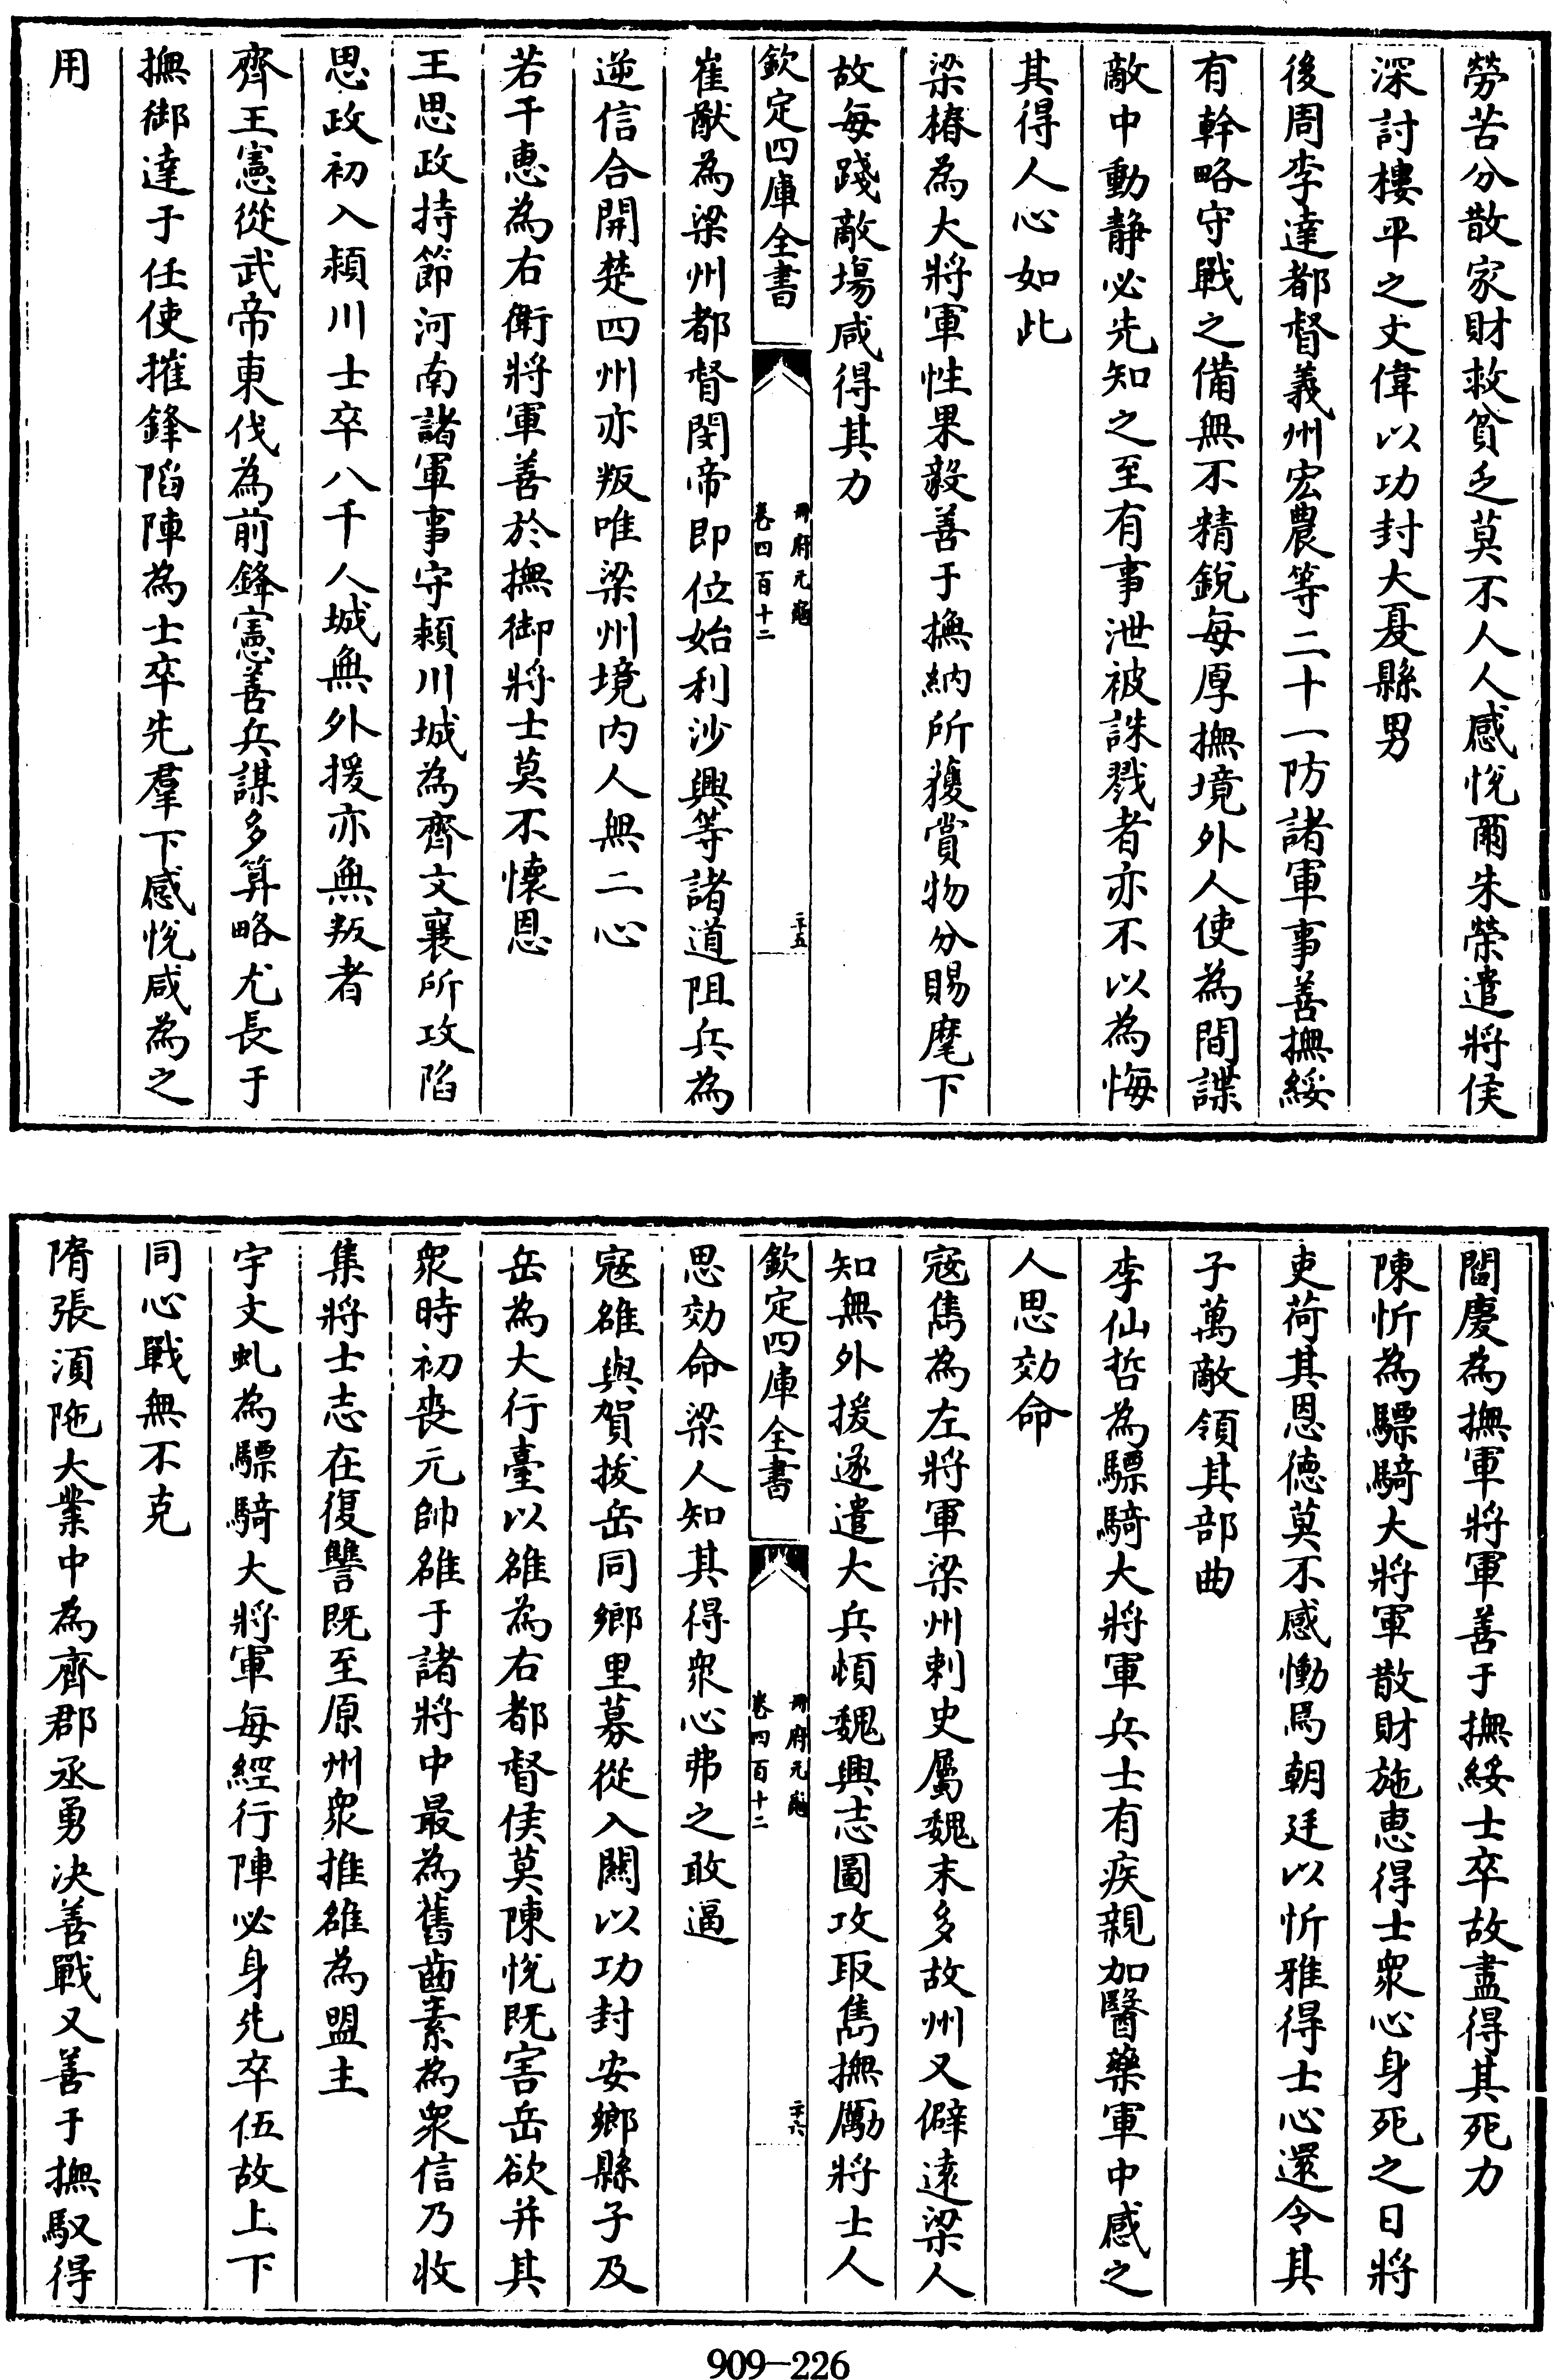 勞苦分散家財救貧乏莫不人人感悅爾朱榮遣將侯
深討樓平之丈偉以功封大夏縣男
後周李達都督義州宏農等二十一防諸軍事善撫綏
有幹略守戰之備無不精銳每厚撫境外人使為間諜
敵中動静必先知之至有事泄被誅戮者亦不以為悔
其得人心如此
梁椿為大將軍性果毅善于撫納所獲賞物分賜麾下
故每踐敵塲咸得其力
欽定四庫全書
冊府元龜
卷四百十二
二十五
崔猷為梁州都督閔帝即位始利沙興等諸道阻兵為
逆信合開楚四州亦叛唯梁州境内人無二心
若干惠為右衛將軍善於撫御將士莫不懷恩
王思政持節河南諸軍事守頴川城為齊文襄所攻陷
思政初入頴川士卒八千人城無外援亦無叛者
齊王憲從武帝東伐為前鋒憲善兵謀多算略尤長于
撫御達于任使摧鋒陷陣為士卒先羣下感悅咸為之
用
閻慶為撫軍將軍善于撫綏士卒故盡得其死力
陳忻為驃騎大將軍散財施惠得士衆心身死之日將
吏荷其恩德莫不感慟焉朝廷以忻雅得士心還令其
子萬敵領其部曲
李仙哲為驃騎大將軍兵士有疾親加醫藥軍中感之
人思効命
寇雋為左將軍梁州刺史屬魏末多故州又僻遠梁人
知無外援遂遣大兵頓魏興志圖攻取雋撫勵將士人
欽定四庫全書
冊府元龜
卷四百十二
二十六
思効命梁人知其得衆心弗之敢逼
寇雒與賀拔岳同鄉里募從入關以功封安鄉縣子及
岳為大行臺以雒為右都督侯莫陳悅既害岳欲并其
衆時初喪元帥雒于諸將中最為舊齒素為衆信乃收
集將士志在復讐既至原州衆推雒為盟主
宇文虬為驃騎大將軍每經行陣必身先卒伍故上下
同心戰無不克
隋張須陁大業中為齊郡丞勇決善戰又善于撫馭得
909-226